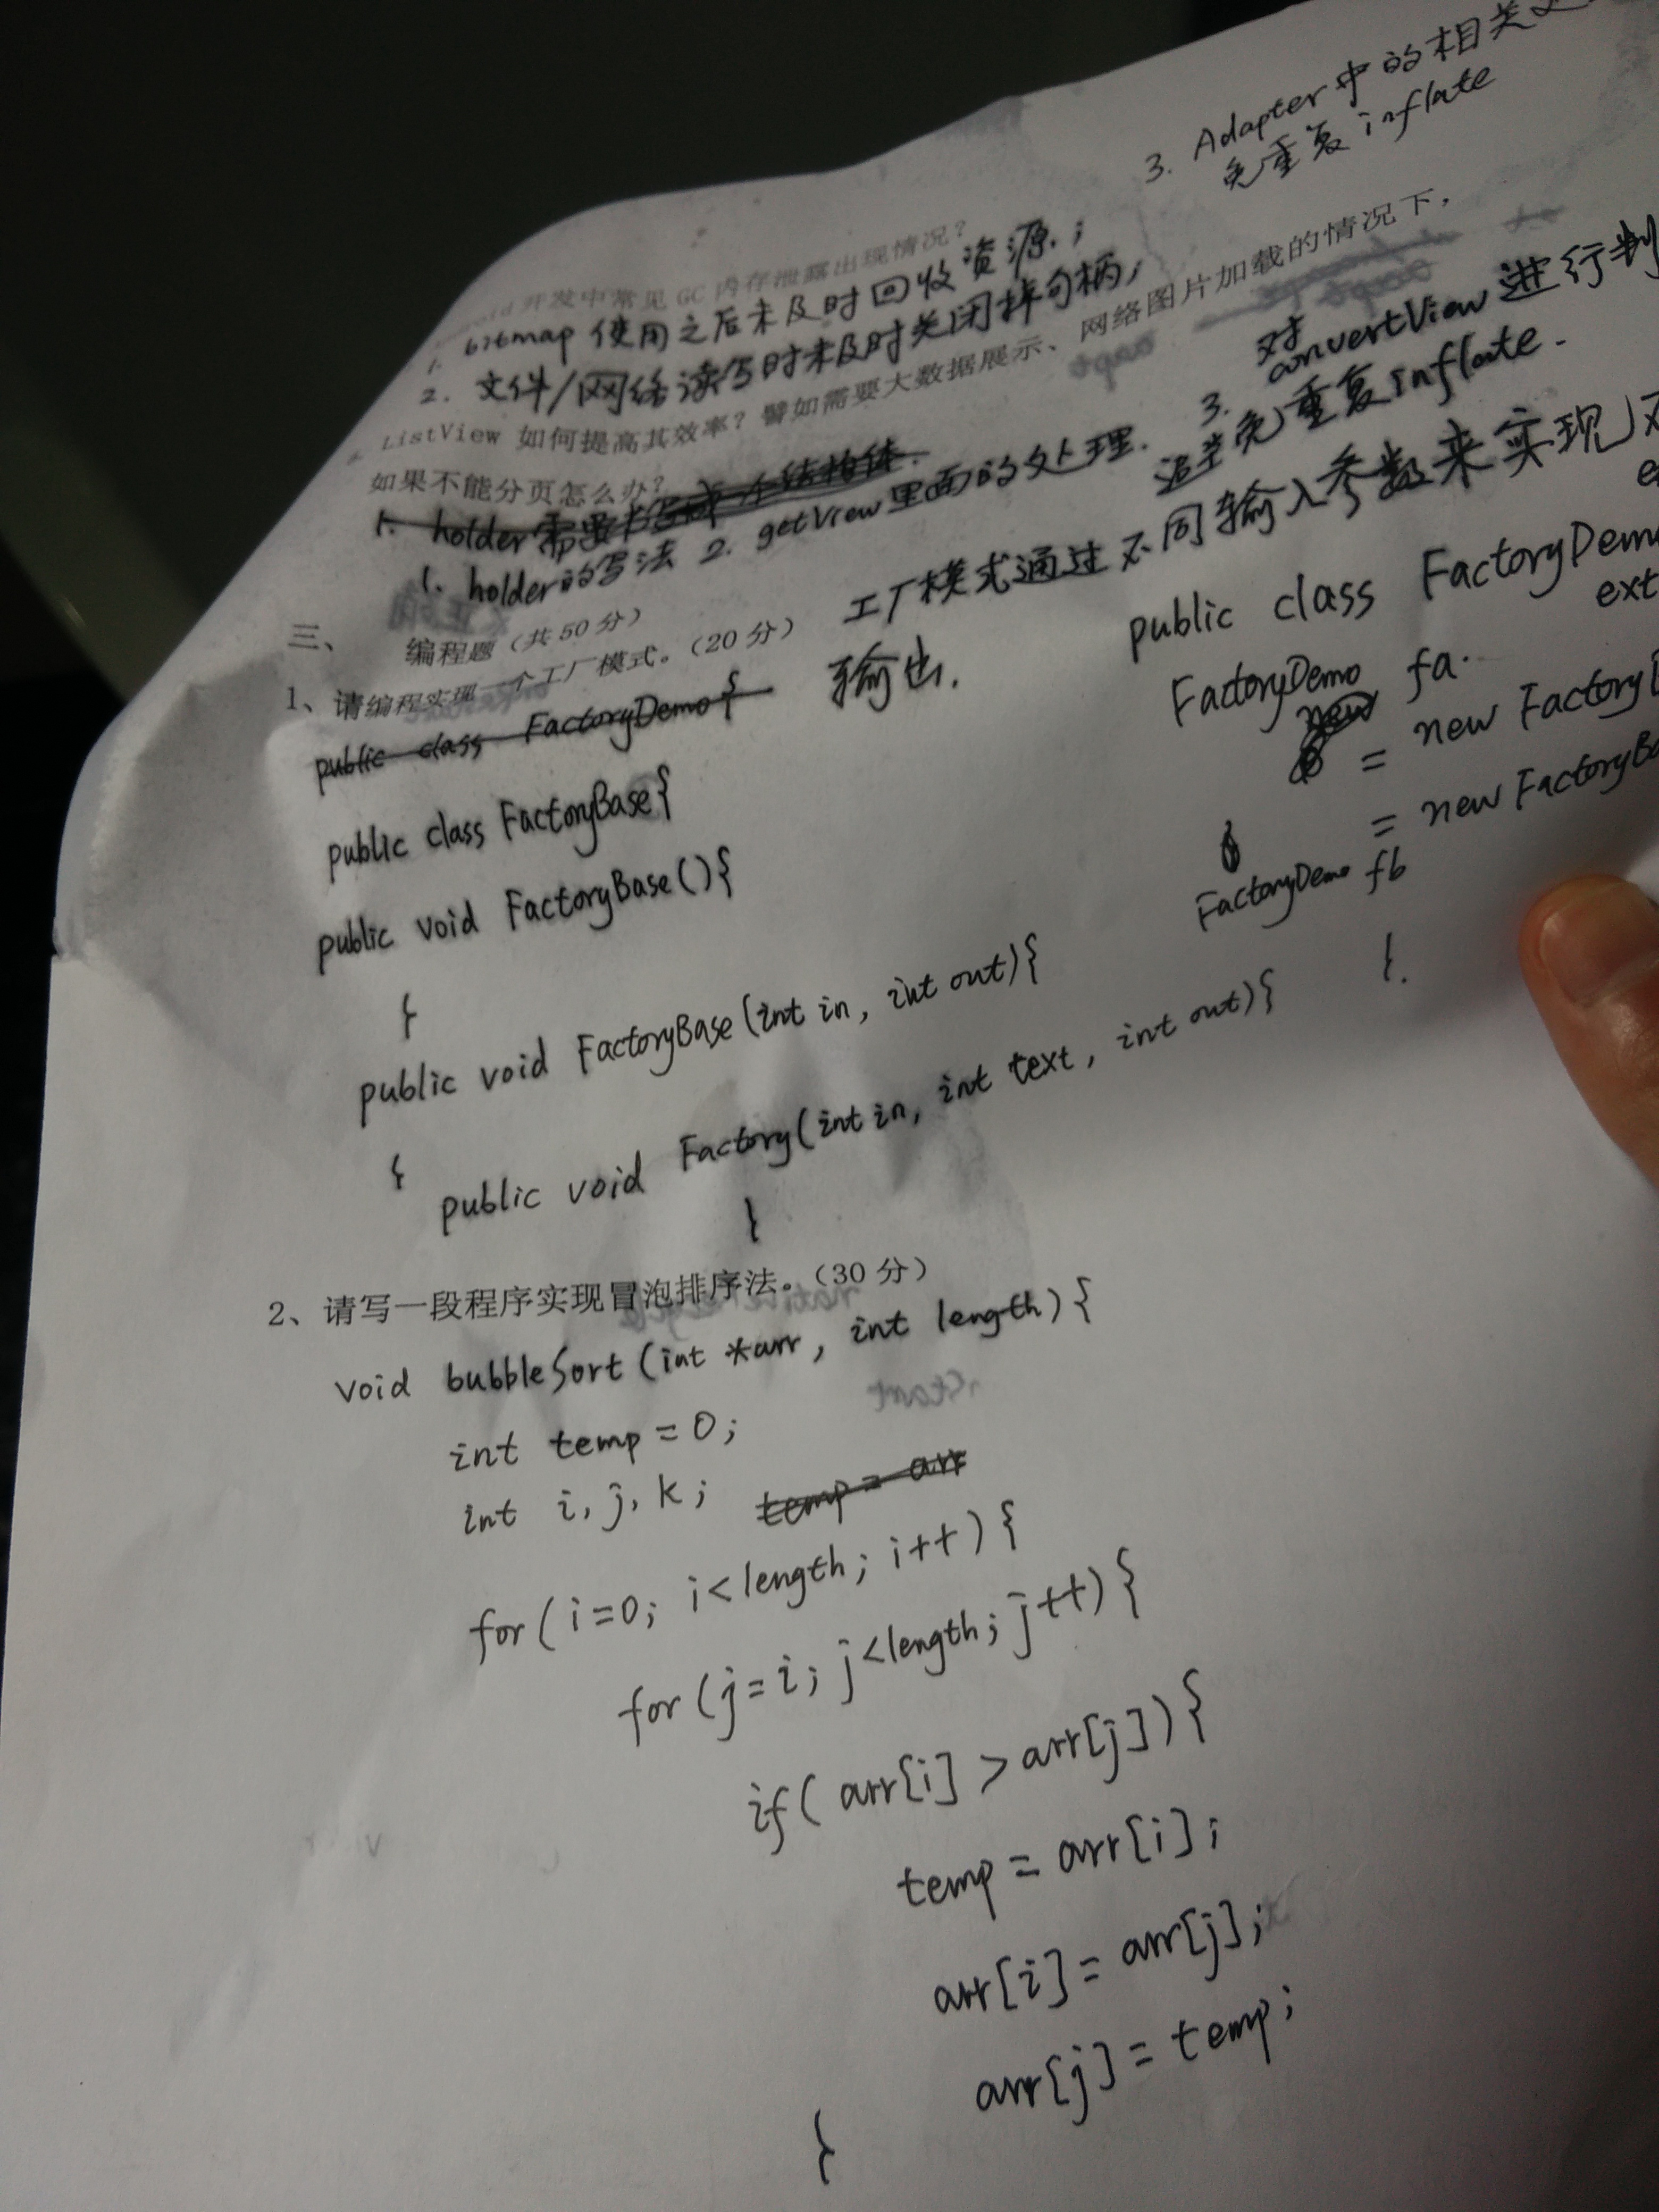 开发中常见 GC 内存泄露出现情况？
1. bitmap 使用之后未及时回收资源；
2. 文件/网络读写时未及时关闭掉句柄；
3. Adapter中的相关
免重复inflate
ListView 如何提高其效率？譬如需要大数据展示、网络图片加载的情况下，
如果不能分页怎么办？
1. holder需要
1. holder的写法 2. getView里面的处理. 3. 对convertView进行判
避免重复inflate.
三、 编程题（共 50 分）
1、请编程实现一个工厂模式。（20 分）
工厂模式通过不同输入参数来实现
输出.
public class FactoryDemo{
public class FactoryBase{
public void FactoryBase(){
}
public void FactoryBase(int in, int out){
{
public void Factory(int in, int text, int out){
}
public class FactoryDem
ext
FactoryDemo fa.
new
= new Factory
= new FactoryBa
FactoryDemo fb
}.
2、请写一段程序实现冒泡排序法。（30 分）
void bubbleSort(int *arr, int length){
int temp = 0;
int i, j, k; temp = arr
for(i=0; i<length; i++){
for(j=i; j<length; j++){
if(arr[i] > arr[j]){
temp = arr[i];
arr[i] = arr[j];
arr[j] = temp;
}